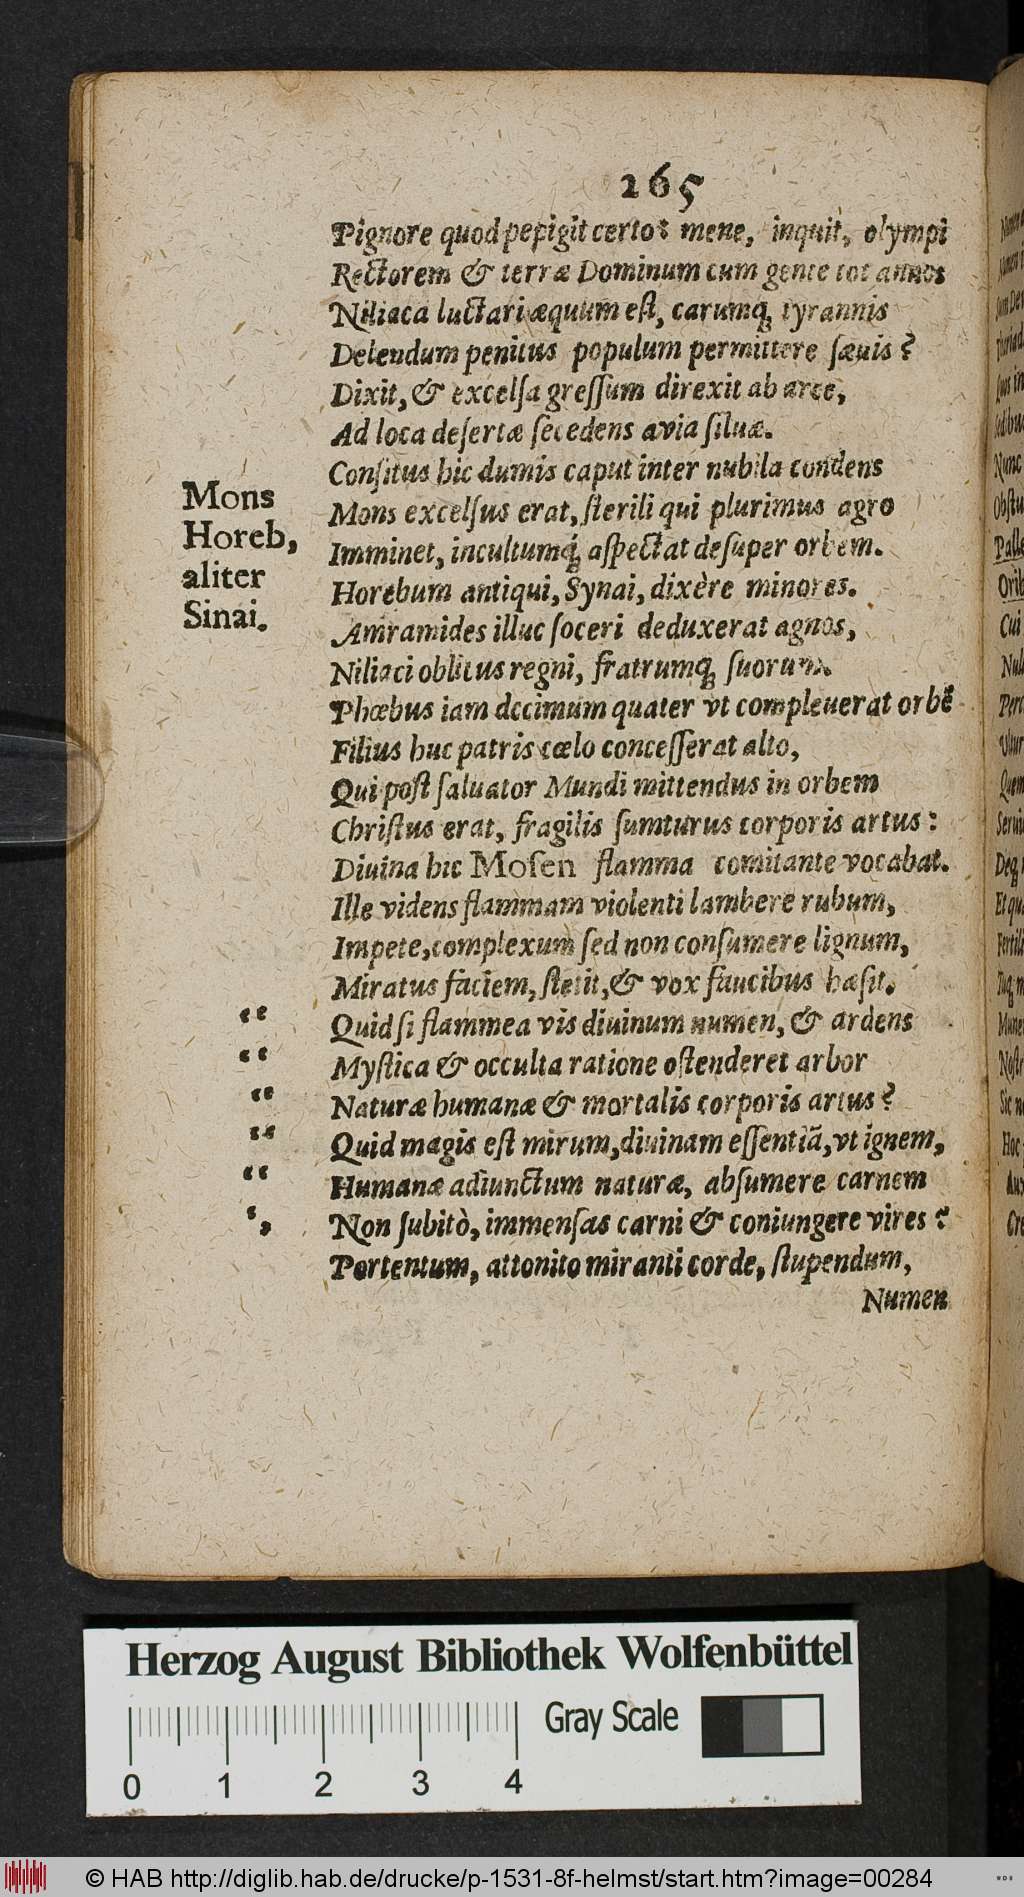 265
Pignore quod pepigit certo: mene, inquit, olympi
Rectorem & terræ Dominum cum gente tot annos
Niliaca luctari æquum eſt, carumq́; tyrannis
Delendum penitus populum permittere ſæuis?
Dixit, & excelſa greſſum direxit ab arce,
Ad loca deſertæ ſecedens avia ſiluæ.
Conſitus hic dumis caput inter nubila condens
Mons
Horeb,
aliter
Sinai.
Mons excelſus erat, ſterili qui plurimus agro
Imminet, incultumq́; aſpectat deſuper orbem.
Horebum antiqui, Synai, dixère minores.
Amramides illuc ſoceri deduxerat agnos,
Niliaci oblitus regni, fratrumq́; ſuorum.
Phœbus iam decimum quater vt compleuerat orbē
Filius huc patris cœlo conceſſerat alto,
Qui poſt ſaluator Mundi mittendus in orbem
Chriſtus erat, fragilis ſumturus corporis artus:
Diuina hic Moſen flamma comitante vocabat.
Ille videns flammam violenti lambere rubum,
Impete, complexum ſed non conſumere lignum,
Miratus faciem, ſtetit, & vox faucibus hæſit.
“ Quid ſi flammea vis diuinum numen, & ardens
“ Myſtica & occulta ratione oſtenderet arbor
“ Naturæ humanæ & mortalis corporis artus?
“ Quid magis eſt mirum, diuinam eſſentiā, vt ignem,
“ Humanæ adiunctum naturæ, abſumere carnem
‘, Non ſubitò, immenſas carni & coniungere vires?
Portentum, attonito miranti corde, ſtupendum,
Numen
Herzog August Bibliothek Wolfenbüttel
Gray Scale
0 1 2 3 4
© HAB http://diglib.hab.de/drucke/p-1531-8f-helmst/start.htm?image=00284